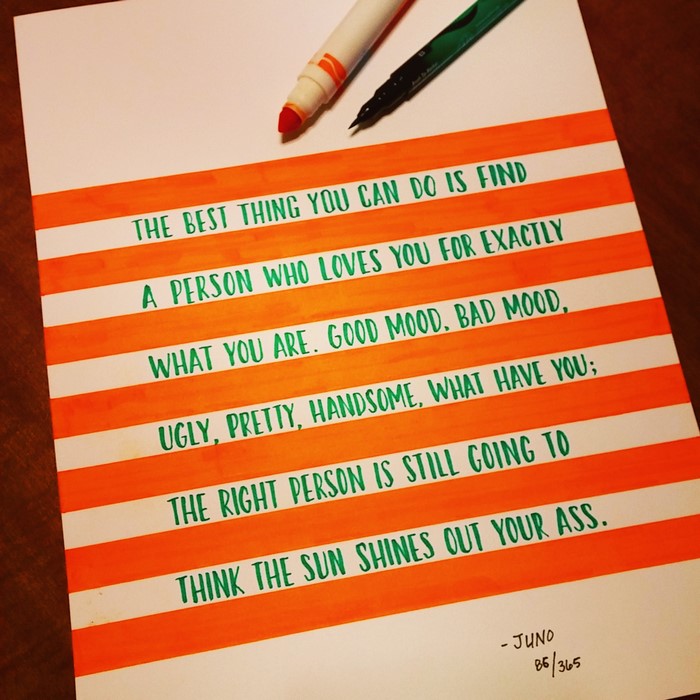 THE BEST THING YOU CAN DO IS FIND
A PERSON WHO LOVES YOU FOR EXACTLY
WHAT YOU ARE. GOOD MOOD, BAD MOOD,
UGLY, PRETTY, HANDSOME, WHAT HAVE YOU;
THE RIGHT PERSON IS STILL GOING TO
THINK THE SUN SHINES OUT YOUR ASS.
- JUNO
86/365